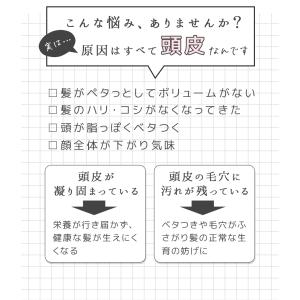 こんな悩み、ありませんか?
実は…
原因はすべて頭皮なんです
□髪がペタっとしてボリュームがない
□髪のハリ・コシがなくなってきた
□頭が脂っぽくベタつく
□顔全体が下がり気味
頭皮が
凝り固まっている
栄養が行き届かず、
健康な髪が生えにく
くなる
頭皮の毛穴に
汚れが残っている
ベタつきや毛穴がふ
さがり髪の正常な生
育の妨げに